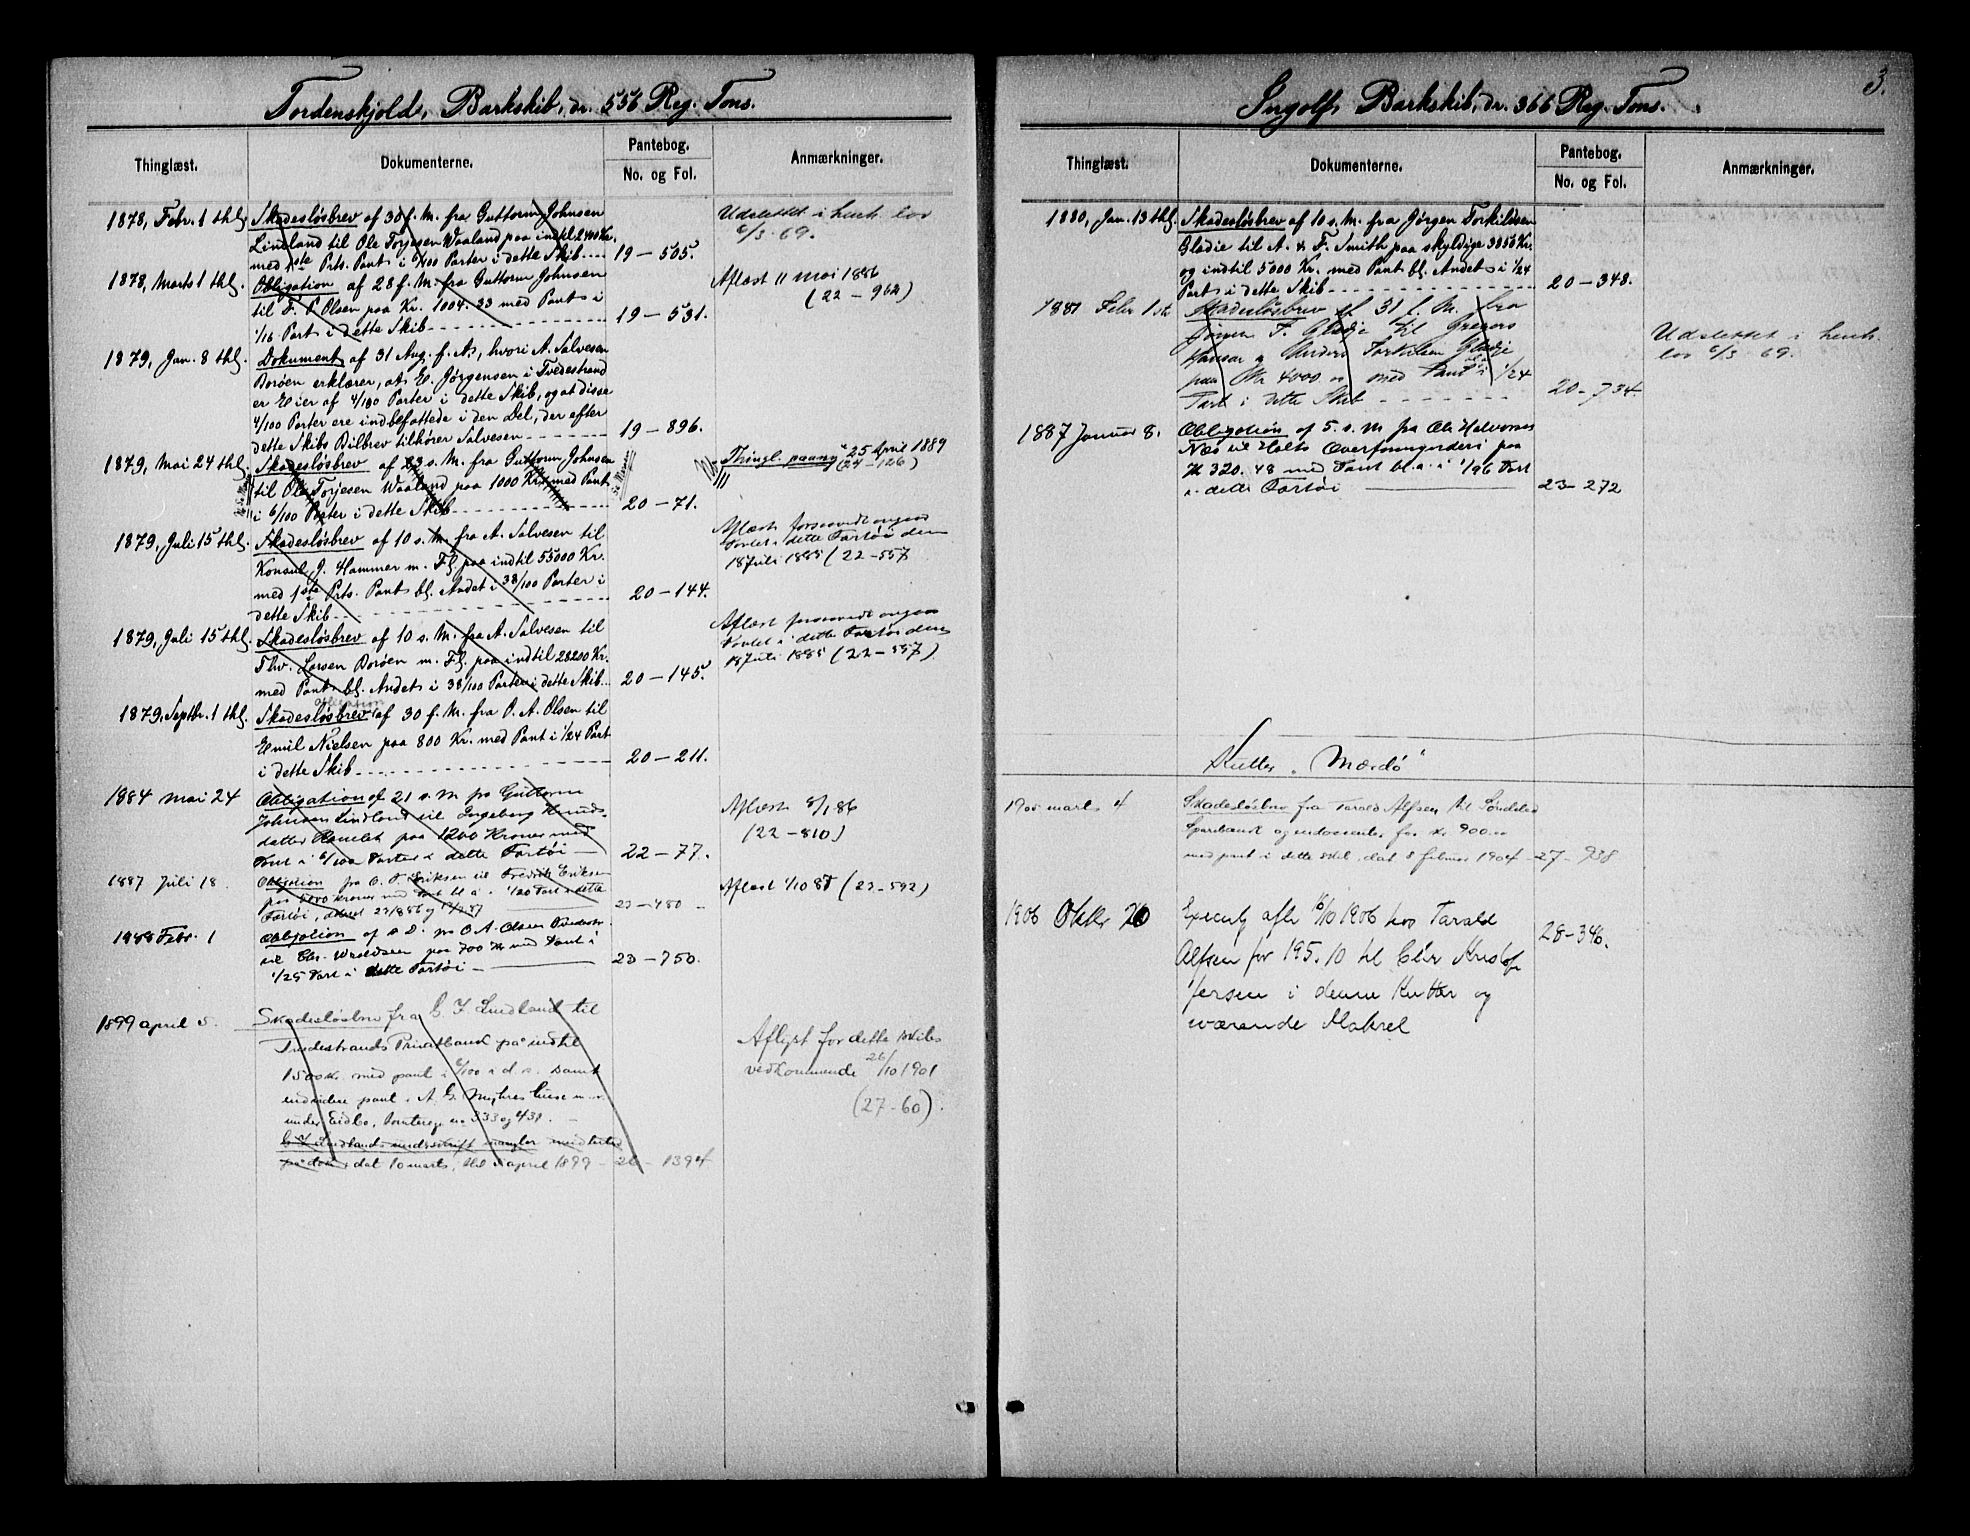 Tordenskjold, Barkskib, dr. 556 Reg. Tons.
Thinglæst.
Dokumenterne.
Pantebog.
No. og Fol.
Anmærkninger.
1878, Febr. 1 thl.
Skadesløsbrev af 30 f. M. fra Guttorm Johnsen
Lindland til Ole Torjesen Waaland paa indtil 2400 Kr.
med 1ste Prts. Pant i 6/100 Parter i dette Skib
19 – 505.
Udslettet i henh. lov
6/3-69.
1878, Marts 1 thl.
Obligation af 28 f. M. fra Guttorm Johnsen
til F. P. Olsen paa Kr. 1004.33 med Pant i
1/16 Part i dette Skib
19 – 531.
Aflæst 11 Mai 1886
(22 – 962)
1879, Jan. 8 thl.
Dokument af 31 Aug. f. A., hvori A. Salvesen
Borøen erklærer, at E. Jørgensen i Tvedestrand
er Eier af 4/100 Parter i dette Skib, og at disse
4/100 Parter ere indbefattede i den Del, der efter
dette Skibs Bilbrev tilhører Salvesen
19 – 896.
1879, Mai 24 thl.
Skadesløsbrev af 23 s. M. fra Guttorm Johnsen
til Ole Torjesen Waaland paa 1000 Kr. med Pant
i 6/100 Parter i dette Skib
20 – 71.
Thingl. paany 25 April 1889
(24 – 126)
1879, Juli 15 thl.
Skadesløsbrev af 10 s. M. fra A. Salvesen til
Konsul J. Hammer m. Fl. paa indtil 55000 Kr.
med 1ste Prts. Pant bl. Andet i 38/100 Parter i
dette Skib
20 – 144.
Aflæst forsaavidt angaar
Pantet i dette Fartøi den
18 Juli 1885 (22 – 557
1879, Juli 15 thl.
Skadesløsbrev af 10 s. M. fra A. Salvesen til
Thv. Larsen Borøen m. Fl. paa indtil 28200 Kr.
med Pant bl. Andet i 38/100 Parter i dette Skib
20 – 145.
Aflæst forsaavidt angaar
Pantet i dette Fartøi den
18 Juli 1885 (22 – 557)
1879, Septbr. 1 thl.
Obligation
Skadesløsbrev af 30 f. M. fra O. A. Olsen til
Emil Nielsen paa 800 Kr. med Pant i 1/24 Part
i dette Skib
20 – 211.
1884 Mai 24
Obligation af 21 s. M fra Guttorm
Johnsen Lindland til Ingeborg Knuds-
datter Ramlet paa 1200 Kroner med
Pant i 6/100 Parter i dette Fartøi
22 – 77.
Aflæst 8/1 86
(22 – 810)
1887 Juli 18.
Obligation fra O. T. Eriksen til Fredrik Eriksen
paa 5000 kroner med Pant bl a. i 1/20 Part i dette
Fartøi,
23 – 480
Aflæst 1/10 87 (23 – 592)
1888 Febr. 1
Obligation af s. D. fra O A. Olsen
til Chr. Wroldsen paa 700 Kr med Pant i
1/25 Part i dette Fartøi
23 – 750.
1899 april 5.
Skadesløsbrev fra C. J. Lindland til
Tvedestrands Privatbank på indtil
1500 kr. med pant i 6/100 i d. s. samt
endvidere pant i A. G. Myhres huse m. v.
under Eidbo, Branttax no 333 og 431.
C J Lindlands underskrift mangler ved
på dok. dat 10 marts, thl 5 april 1899
26 – 1394
Aflyst for dette skibs
vedkommende 26/10 1901
(27 – 60).
3.
Ingolf, Barkskib, dr. 366 Reg. Tons.
Thinglæst.
Dokumenterne.
Pantebog.
No. og Fol.
Anmærkninger.
1880, Jan. 13 thl.
Skadesløsbrev af 10 s. M. fra Jørgen Torkildsen
Gladie til A. & F. Smith paa skyldige 3056 Kr.
og indtil 5000 Kr. med Pant bl. Andet i 1/24
Part i dette Skib
20 – 348.
1881 Febr 1ste
Skadesløsbrev af 31 f. M. fra
Jørgen T. Gladie til Gregers
Hansen og Anders Torkildsen Gladie
paa Kr 4000 00 med Pant i 1/24
Part i dette Skib
20 – 734.
Udslettet i henh.
lov 6/3-69.
1887 Januar 8.
Obligation af 5. s. M fra Ole Halvorsen
Næs til Holts Overformynderi paa
Kr 320.48 med Pant bl. a. i 1/96 Part
i dette Fartøi
23 – 272
Kutter "Mærdø"
1905 marts 4
Skadesløsbrev fra Tarald Alfsen til Søndeled
Sparebank og endossenter for kr 900.00
med pant i dette skib, dat 8 februar 1904
27 – 938
1906 Oktbr 20
Execut. afh. 16/10 1906 hos Tarald
Alfsen for 195.10 til Chr Kristof-
fersen i denne Kutter og
værende Makrel
28 – 346.